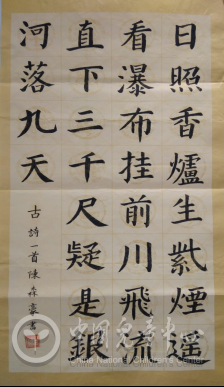 日照香爐生紫煙遥
看瀑布挂前川飛流
直下三千尺疑是銀
河落九天
古詩一首陳森豪書
中國兒童中心
China National Children's Center